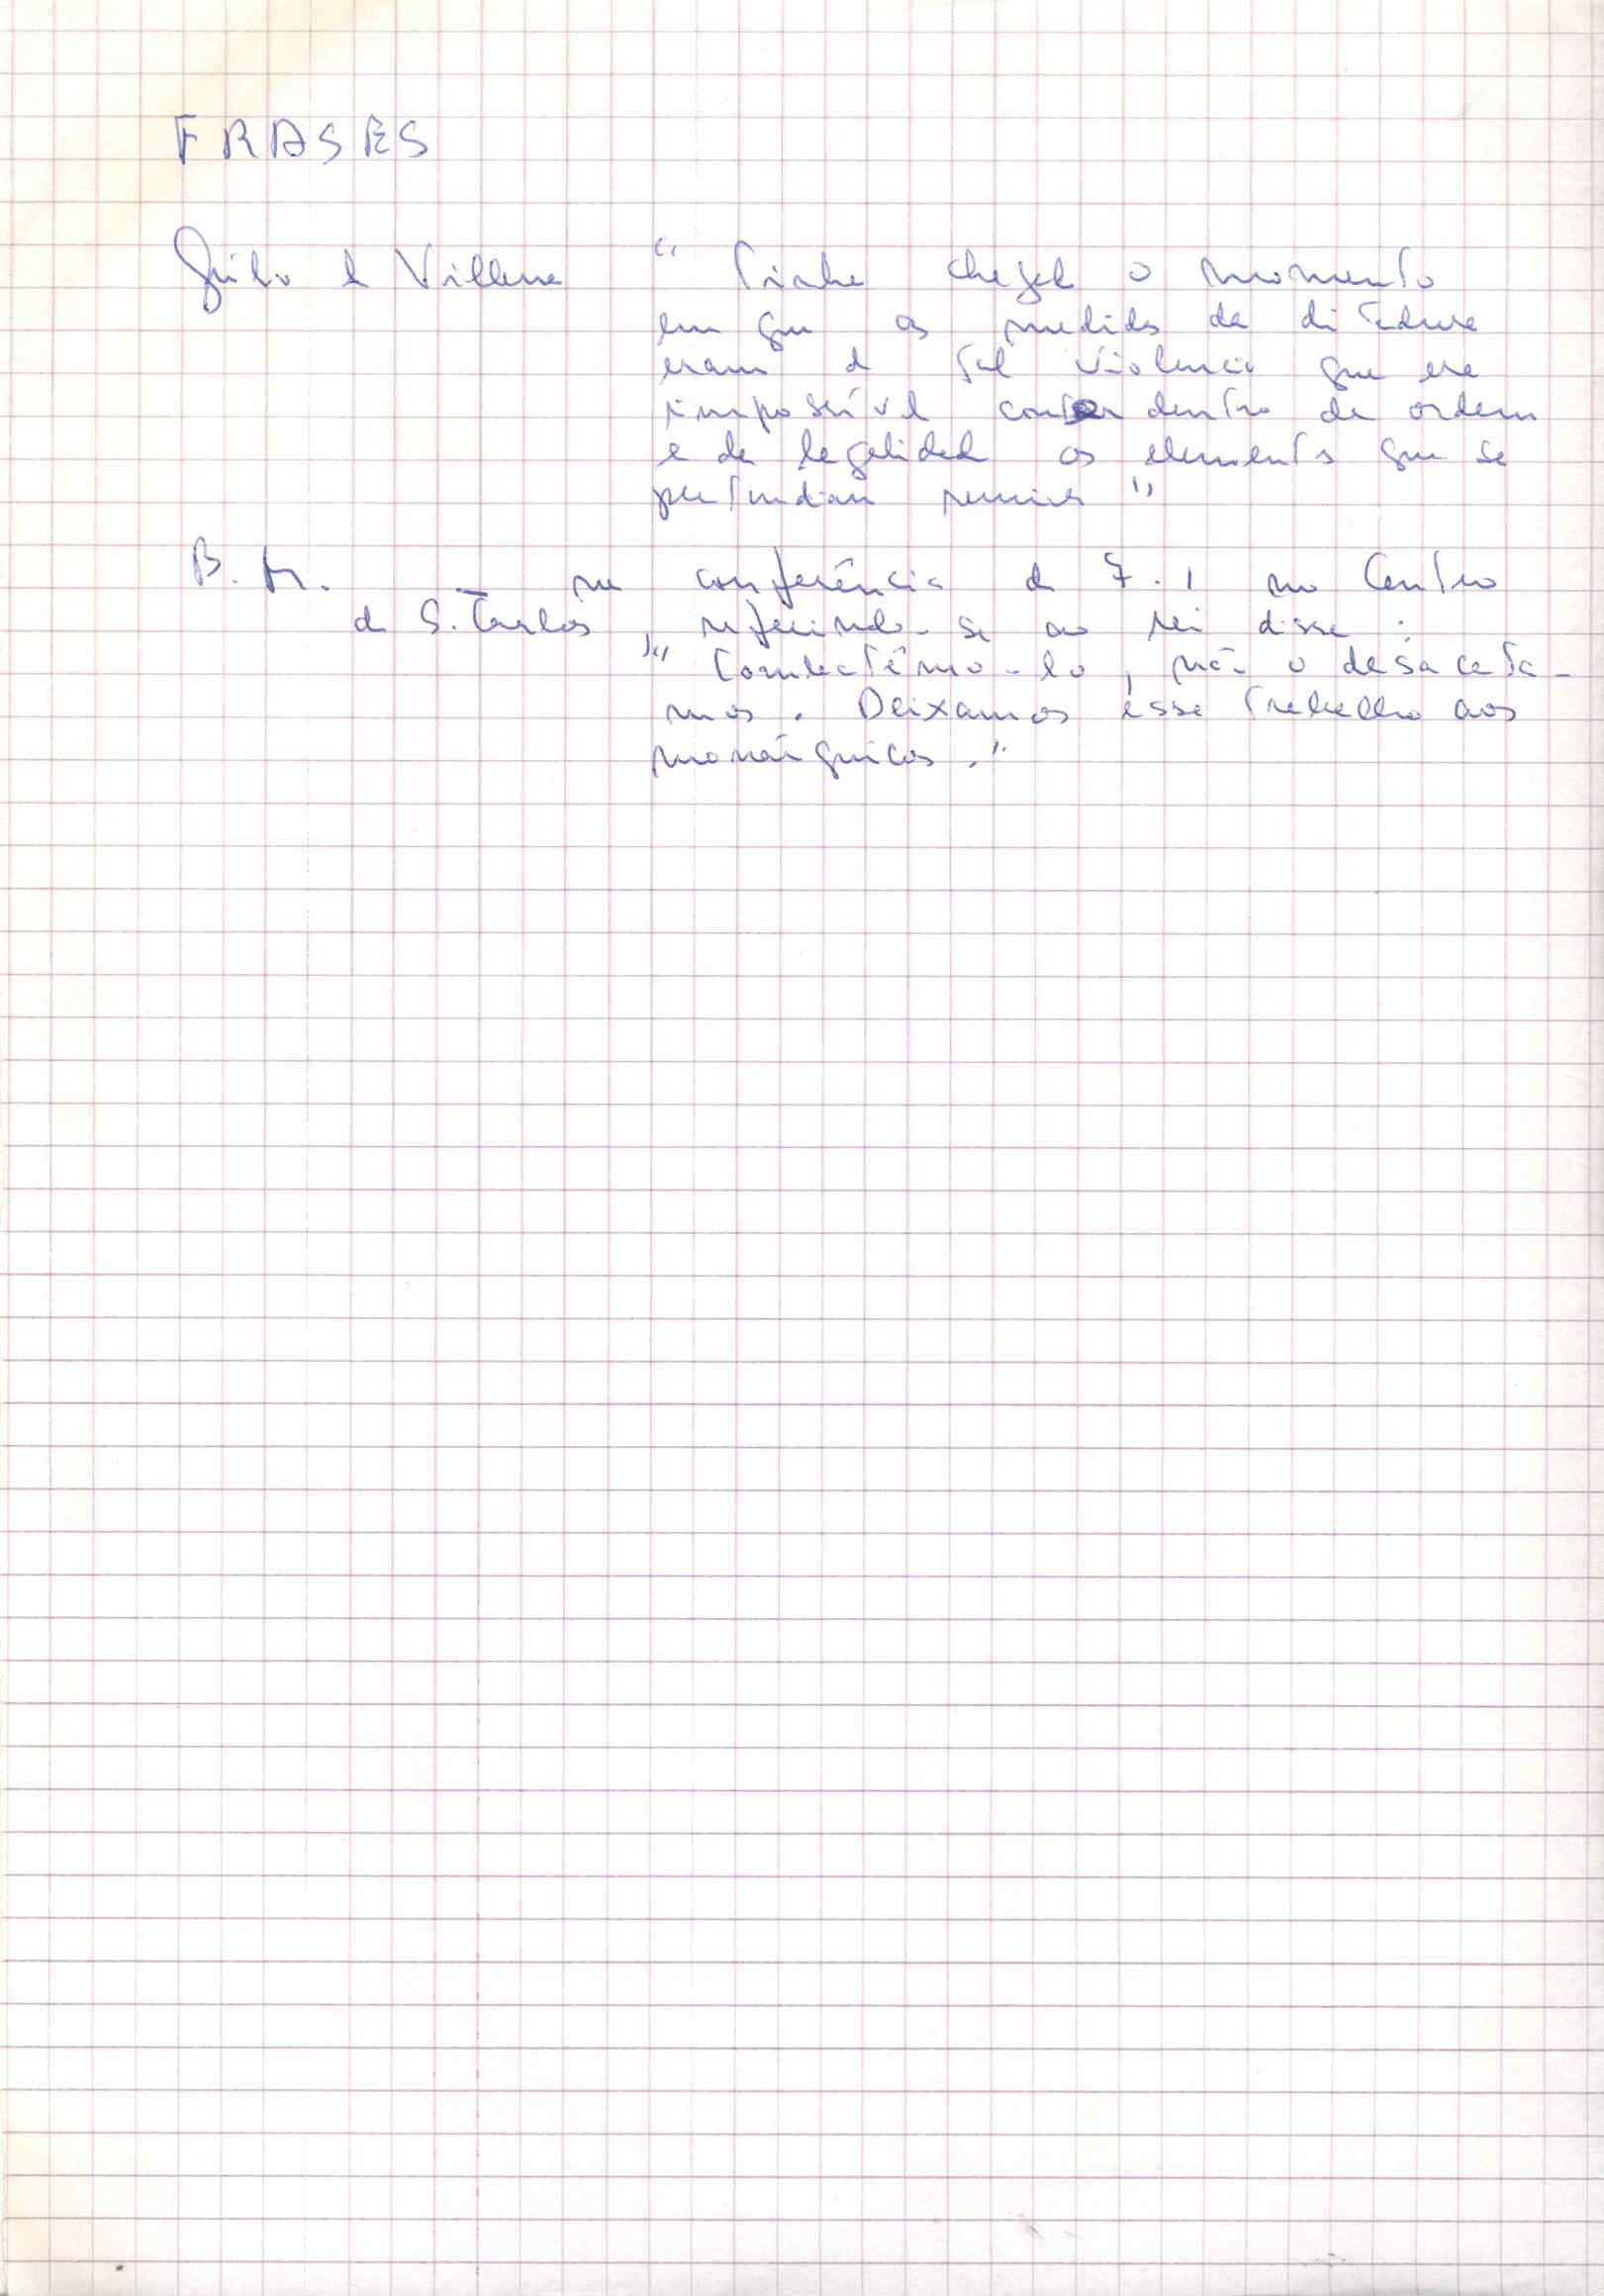 FRASES
Júlio de Vilhena "Tinha chegado o momento
em que as medidas da ditadura
eram de tal violencia que era
impossível conter dentro da ordem
e da legalidade os elementos que se
pretendiam reunir"
B. M. — na conferência de 7.1 no Centro
de S. Carlos, referindo-se ao rei disse:
"Combatêmo-lo, não o desacata-
mos. Deixamos esse trabalho aos
monárquicos."